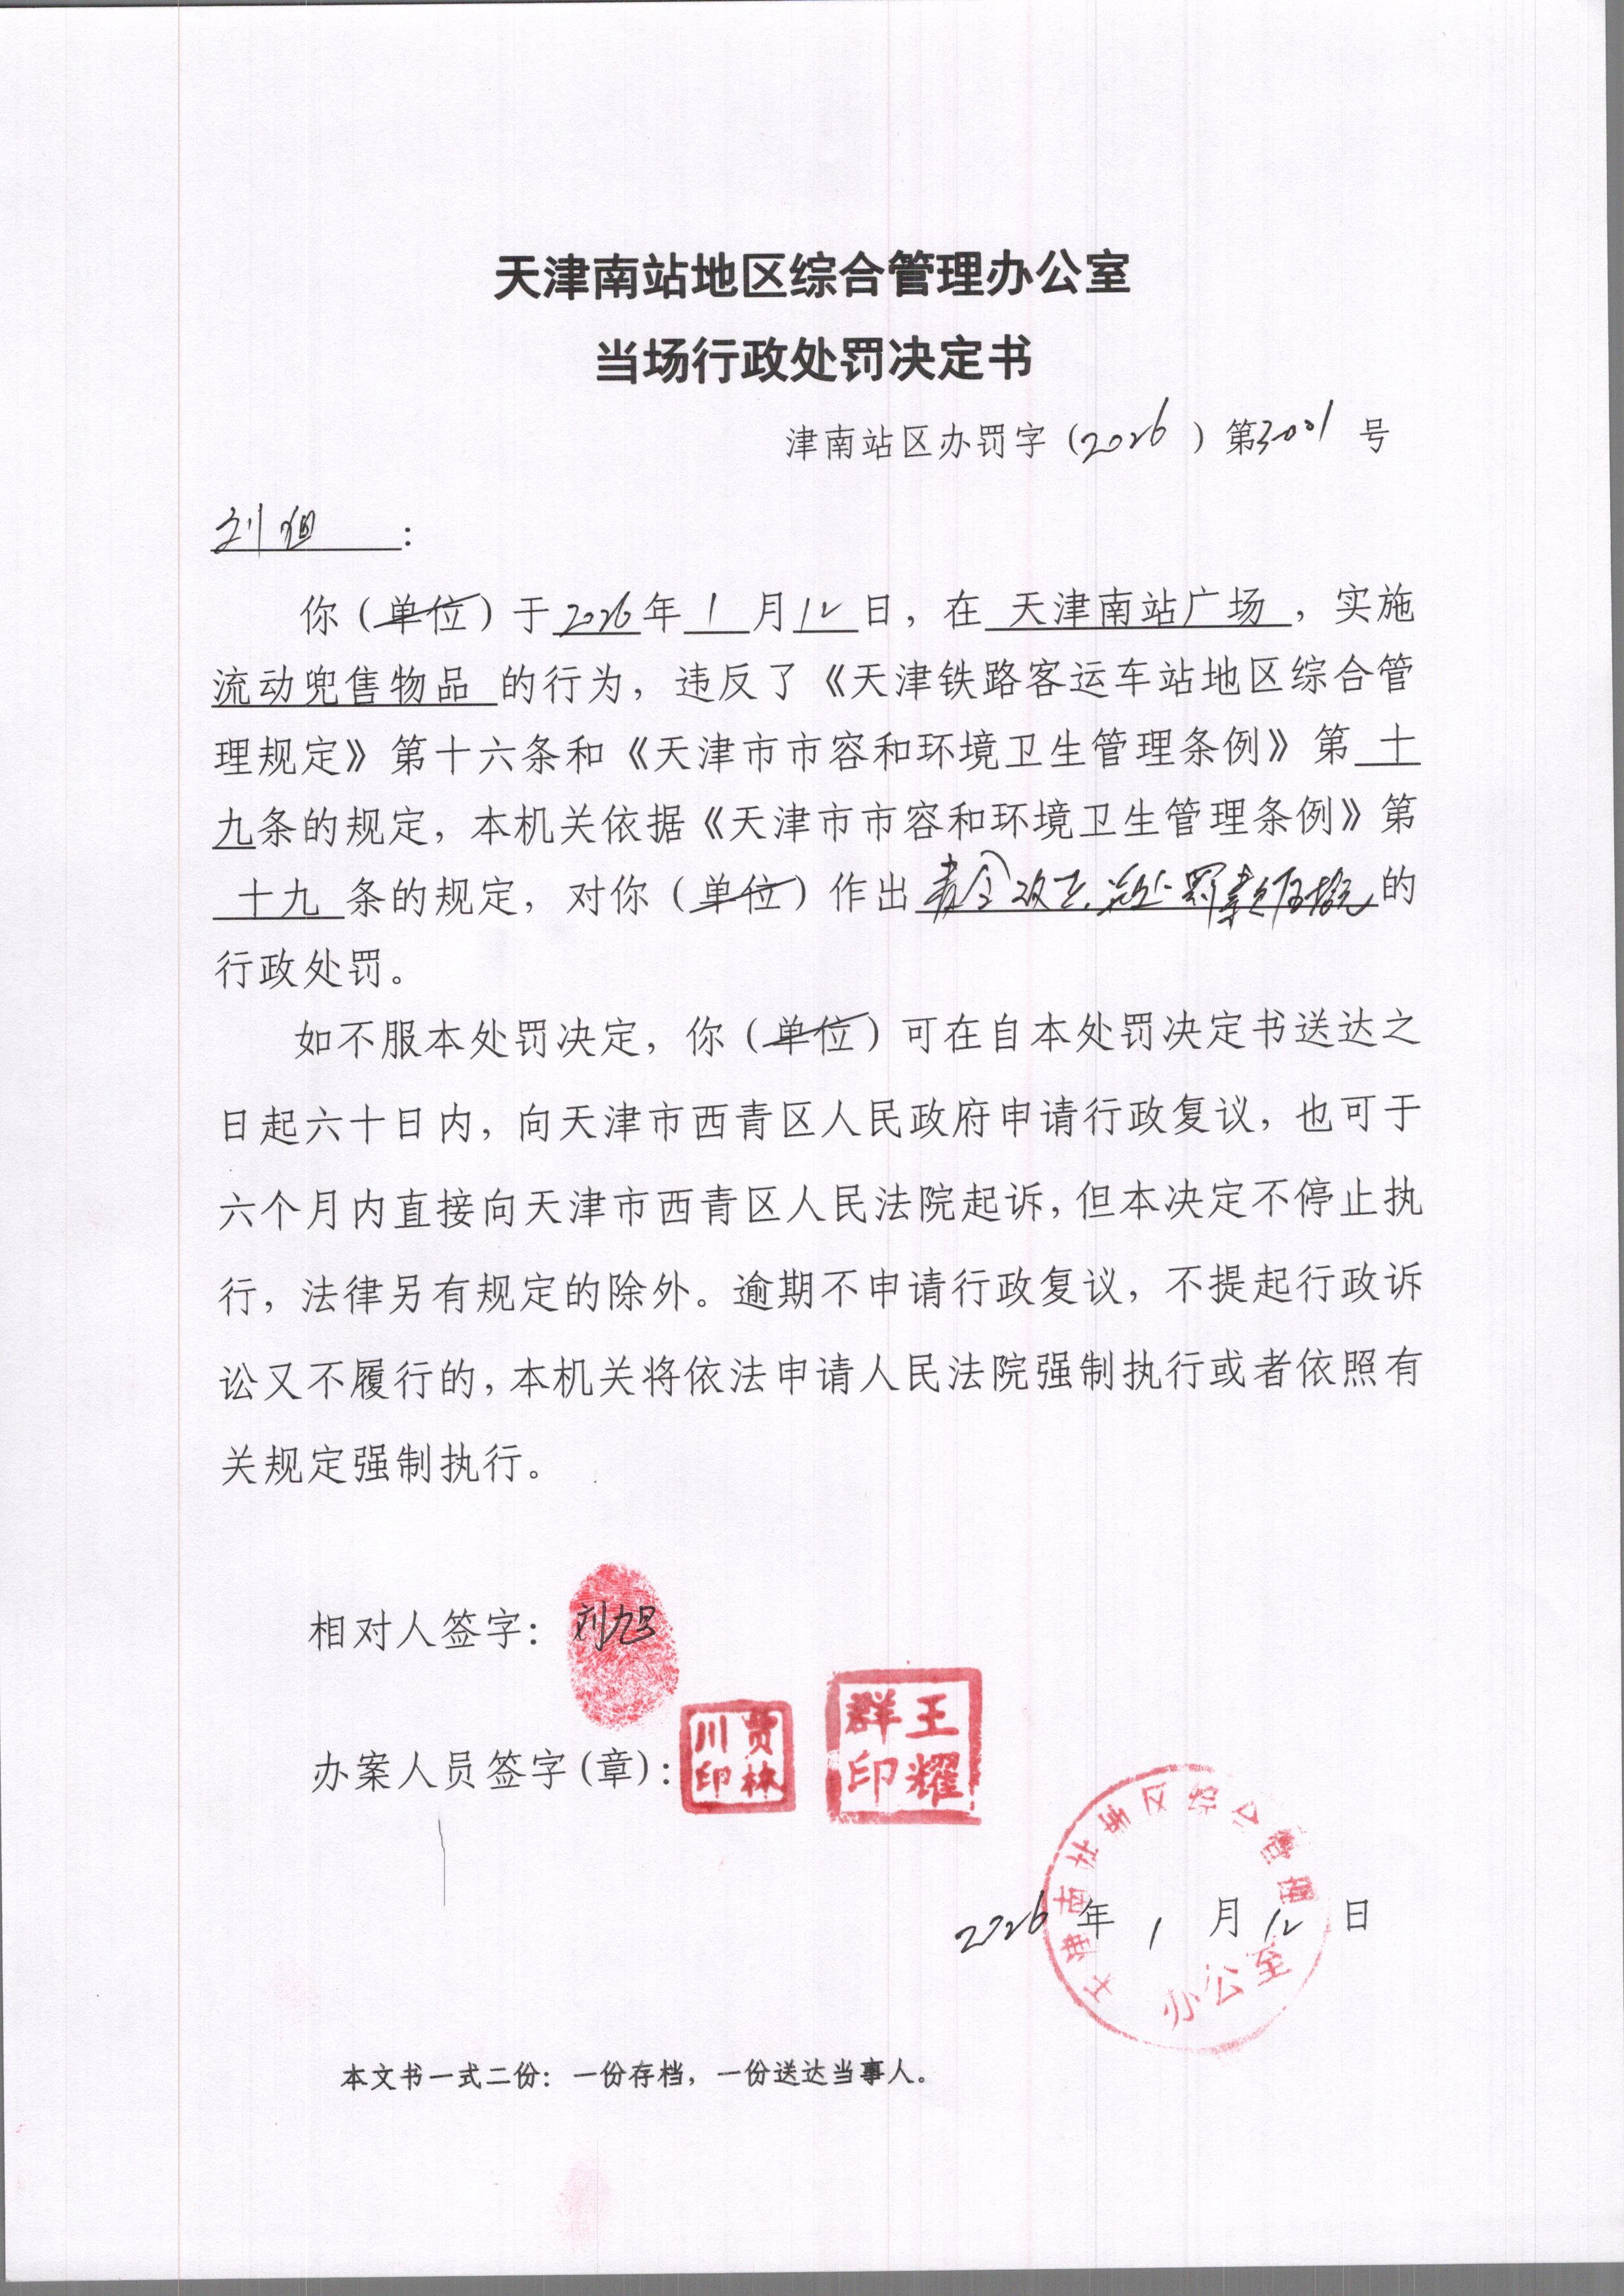 天津南站地区综合管理办公室
当场行政处罚决定书
津南站区办罚字（2026）第3001号
刘旭：
你（单位）于2026年1月12日，在天津南站广场，实施
流动兜售物品的行为，违反了《天津铁路客运车站地区综合管
理规定》第十六条和《天津市市容和环境卫生管理条例》第十
九条的规定，本机关依据《天津市市容和环境卫生管理条例》第
十九条的规定，对你（单位）作出责令改正，并处罚款伍拾元的
行政处罚。
如不服本处罚决定，你（单位）可在自本处罚决定书送达之
日起六十日内，向天津市西青区人民政府申请行政复议，也可于
六个月内直接向天津市西青区人民法院起诉，但本决定不停止执
行，法律另有规定的除外。逾期不申请行政复议，不提起行政诉
讼又不履行的，本机关将依法申请人民法院强制执行或者依照有
关规定强制执行。
相对人签字：刘旭
办案人员签字(章)：贾林川印 王耀群印
天津南站地区综合管理
办公室
2026年1月12日
本文书一式二份：一份存档，一份送达当事人。